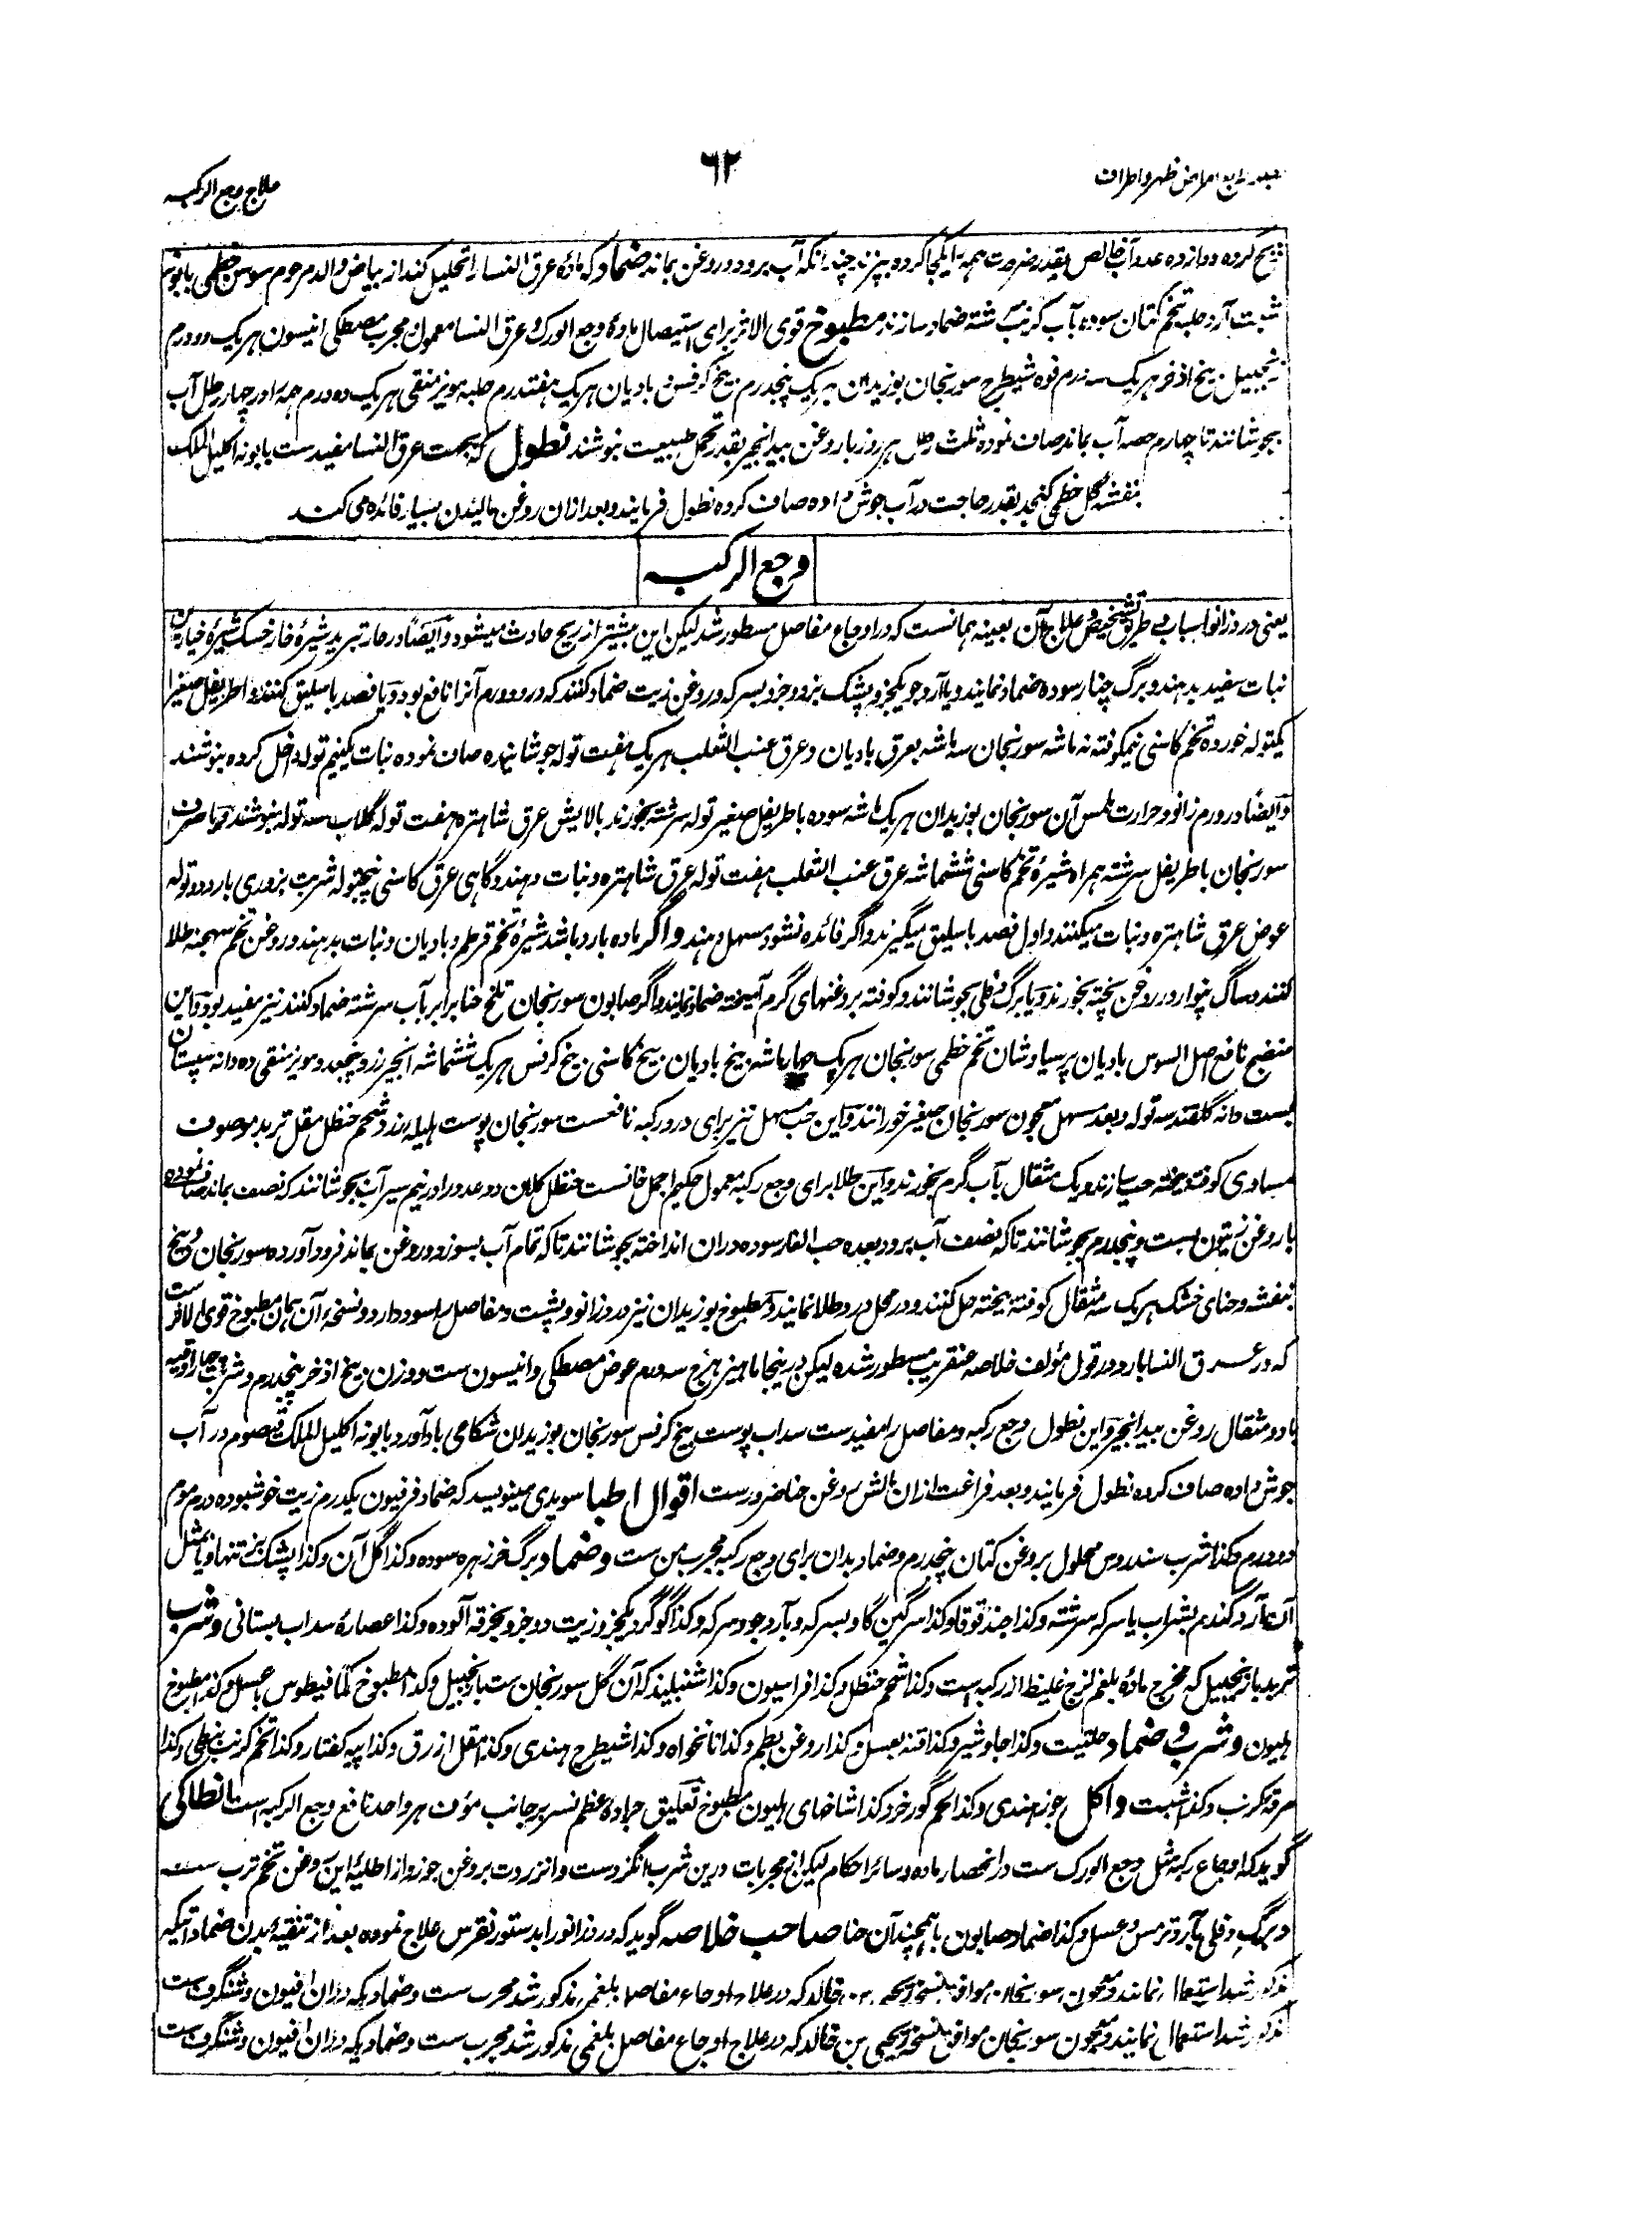 امراض ظهر و اطراف
٦٢
علاج وجع الرکبه
کرده دوازده عدد آب خالص بقدر ضرورت همه را یکجا کرده بپزند چندانکه آب برود و روغن بماند ضماد که مادهٔ عرق النسا را تحلیل کند از بیاض والد مرحوم سوسن خطمی بابونه
شبت آرد حلبه تخم کتان سوده بآب کرنب سرشته ضماد سازند مطبوخ قوی الاثر برای استیصال مادهٔ وجع الورک و عرق النسا معمول و مجرب مصطکی انیسون هر یک دو درم
زنجبیل بیخ اذخر هر یک سه درم فوه شیطرج سورنجان بوزیدان هر یک پنجدرم بیخ کرفس بادیان هر یک هفتدرم حلبه مویز منقی هر یک ده درم همه را در چهار رطل آب
بجوشانند تا چهارم حصه آب بماند صاف نموده ثلث رطل هر روز با روغن بیدانجیر بقدر تحمل طبیعت بنوشند نطول که بجهت عرق النسا مفیدست بابونه اکلیل الملک
بنفشه گل خطمی کنجد بقدر حاجت در آب جوش داده صاف کرده نطول فرمایند و بعد ازان روغن مالیدن بسیار فائده می کند
وجع الرکبه
یعنی درد زانو اسباب و طریق تشخیص و علاج آن بعینه همانست که در اوجاع مفاصل مسطور شد لیکن این بیشتر از ریح حادث میشود و ایضاً در حار تبرید شیرهٔ خارخسک شیرهٔ خیارین
نبات سفید بدهند و برگ چنار سوده ضماد نمایند و یا آرد جو یکجزو پشک بز دو جزو بسرکه و روغن زیت ضماد کنند که درد و ورم آنرا نافع بود و یا فصد باسلیق کنند و اطریفل صغیر
یکتوله خورده تخم کاسنی نیمکوفته نه ماشه سورنجان سه ماشه بعرق بادیان و عرق عنب الثعلب هر یک هفت توله جوشانیده صاف نموده نبات یکنیم توله داخل کرده بنوشند
و ایضاً در ورم زانو و حرارت ملمس آن سورنجان بوزیدان هر یک ماشه سوده باطریفل صغیر توله سرشته بخورند بالایش عرق شاهتره هفت توله گلاب سه توله بنوشند و یا صرف
سورنجان باطریفل سرشته همراه شیرهٔ تخم کاسنی ششماشه عرق عنب الثعلب هفت توله عرق شاهتره و نبات دهند و گاهی عرق کاسنی پنجتوله شربت بزوری بارد دو توله
عوض عرق شاهتره و نبات میکنند و اول فصد باسلیق میگیرند و اگر فائده نشود مسهل دهند و اگر ماده بارد باشد شیرهٔ تخم قرطم و بادیان و نبات بدهند و روغن تخم سهجنه طلا
کنند و ساگ پنوار در روغن پخته بخورند و یا برگ دفلی بجوشانند و کوفته بروغنهای گرم آمیخته ضماد نمایند و اگر صابون سورنجان تلخ حنا برابر بآب سرشته ضماد کنند نیز مفید بود و این
منضج نافع اصل السوس بادیان پرسیاوشان تخم خطمی سورنجان هر یک چهار ماشه بیخ بادیان بیخ کاسنی بیخ کرفس هر یک ششماشه انجیر زرد پنجعدد مویز منقی ده دانه سپستان
بست دانه گلقند سه توله و بعد مسهل معجون سورنجان صغیر خورانند و این حب مسهل نیز برای درد رکبه نافعست سورنجان پوست هلیله زرد شحم حنظل مقل تربد موصوف
مساوی کوفته بیخته حب سازند و یک مثقال بآب گرم بخورند و این طلا برای وجع رکبه معمول حکیم اجمل خانست حنظل کلان دو عدد را در نیم سیر آب بجوشانند که نصف بماند صاف نموده
با روغن زیتون بست و پنجدرم بجوشانند تا که نصف آب برود بعده حب الغار سوده دران انداخته بجوشانند تا که تمام آب بسوزد و روغن بماند فرود آورده سورنجان و بیخ
بنفشه و حنای خشک هر یک سه مثقال کوفته بیخته حل کنند و در محل درد طلا نمایند و مطبوخ بوزیدان نیز درد زانو و پشت و مفاصل را سود دارد و نسخهٔ آن همان مطبوخ قوی الاثر ست
که در عرق النسا بارد در قول مؤلف خلاصه عنقریب مسطور شده لیکن درینجا ماهیزهرج سه درم عوض مصطکی و انیسون ست و وزن بیخ اذخر پنجدرم و شربت چهار اوقیه
با دو مثقال روغن بیدانجیر و این نطول وجع رکبه و مفاصل را مفیدست سداب پوست بیخ کرفس سورنجان بوزیدان شکاعی بادآورد بابونه اکلیل الملک قیصوم در آب
جوش داده صاف کرده نطول فرمایند و بعد فراغت ازان مالش روغن حنا ضرورست اقوال اطبا سویدی مینویسد که ضماد فرفیون یکدرم زیت خوشبو ده درم موم
دو درم و کذا شرب سندروس محلول بروغن کتان پنجدرم و ضماد بدان برای وجع رکبه مجرب من ست و ضماد برگ خرزهره سوده و کذا گل آن و کذا پشک بز تنها و یا بمثل
آن آرد گندم بشراب یا سرکه سرشته و کذا جندقوقا و کذا سرگین گاو بسرکه و بآرد جو و سرکه و کذا گوگرد یکجزو زیت دو جزو بخرقه آلوده و کذا عصارهٔ سداب بستانی و شرب
تربد با زنجبیل که مخرج مادهٔ بلغم لزج غلیظ از رکبه است و کذا شحم حنظل و کذا فراسیون و کذا شنبلید که آن گل سورنجان ست با زنجبیل و کذا مطبوخ کمافیطوس با عسل و کذا مطبوخ
هلیون و شرب و ضماد حلتیت و کذا جاوشیر و کذا قنه بعسل و کذا روغن بطم و کذا نانخواه و کذا شیطرج هندی و کذا مقل ازرق و کذا پیه کفتار و کذا تخم کرنب نبطی و کذا
مرقه کرنب و کذا شبت و اکل جوز هندی و کذا لحم گورخر و کذا شاخهای هلیون مطبوخ تعلیق جرادهٔ عظم نسر بر جانب مؤف هر واحد نافع وجع الرکبه است انطاکی
گوید که اوجاع رکبه مثل وجع الورک ست در انحصار ماده و سائر احکام لیکن از مجربات درین شرب انگزدست و انزروت بروغن جوز و از اطلیهٔ این روغن تخم ترب ست
و برگ دفلی بآرد ترمس و عسل و کذا ضماد صابون با همچند آن حنا صاحب خلاصه گوید که درد زانو را بدستور نقرس علاج نموده بعد از تنقیهٔ بدن ضماد اتیکه
مذکور شد استعمال نمایند و معجون سورنجان موافق نسخهٔ یحیی بن خالد که در علاج اوجاع مفاصل بلغمی مذکور شد مجرب ست و ضمادیکه دران افیون و شنگرف ست
مذکور شد استعمال نمایند و معجون سورنجان موافق نسخهٔ یحیی بن خالد که در علاج اوجاع مفاصل بلغمی مذکور شد مجرب ست و ضمادیکه دران افیون و شنگرف ست